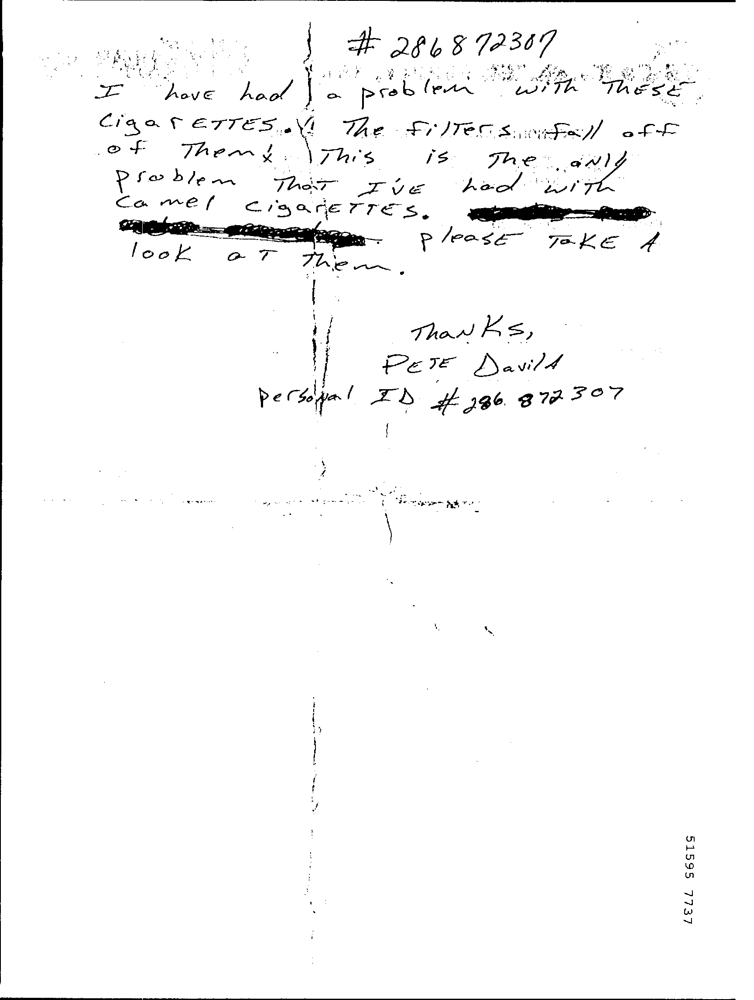 # 286872307
I have had a problem with THESE
CigarETTES. The filTers fall off
of Them. This is The only
problem ThaT I'VE had with
Camel cigarETTES.
please TaKE A
look aT Them.
ThanKs,
PETE
personal ID # 286 872307
51595 7737